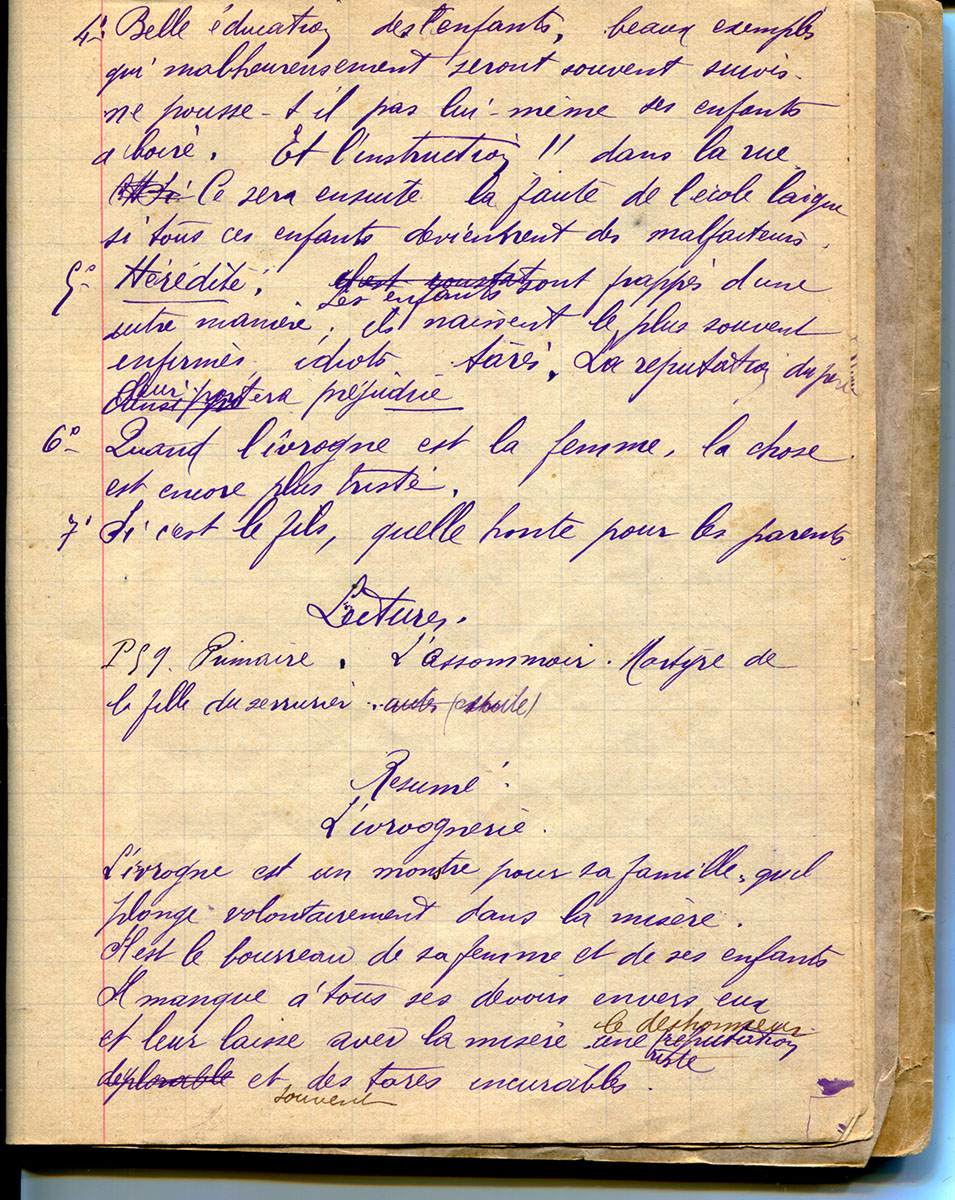 4° Belle éducation des enfants, beaux exemples
qui malheureusement seront souvent suivis.
ne pousse-t il pas lui-même ses enfants
a boire. Et l'instruction !! dans la rue
Ce sera ensuite la faute de l'école laïque
si tous ces enfants deviennent des malfaiteurs.
5° Hérédité; Les enfants sont frappés d'une
autre manière; ils naissent le plus souvent
enfirmes, idiots tarés. La reputation du père
leur portera préjudice
6° Quand l'ivrogne est la femme, la chose
est encore plus triste.
7° Si c'est le fils, quelle honte pour les parents
Lectures.
P59. Primaire. L'assommoir. Martyre de
la fille du serrurier
Resumé.
L'ivrognerie.
L'ivrogne est un monstre pour sa famille, qu'il
plonge volontairement dans la misère.
Il est le bourreau de sa femme et de ses enfants
Il manque à tous ses devoirs envers eux
le deshonneur
et leur laisse avec la misère une reputation
triste
deplorable et des tares incurables.
souvent